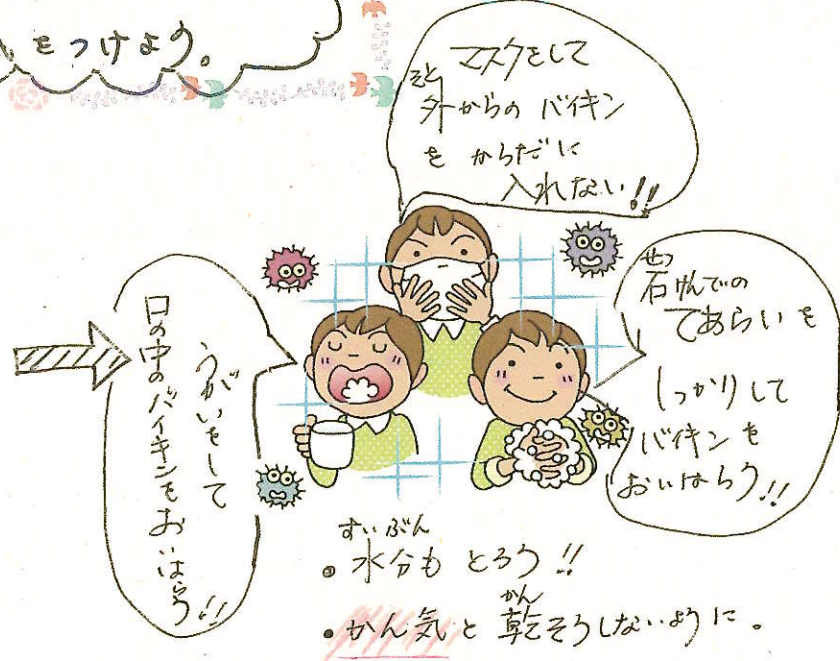 をつけよう。
マスクをして
外からの バイキン
を からだに
入れない!!
そと
石けんでの
てあらいを
しっかりして
バイキンを
おいはらう!!
せっ
うがいをして
口の中のバイキンをおいはらう!!
すいぶん
・水分も とろう!!
かん
・かん気と 乾そうしないように。